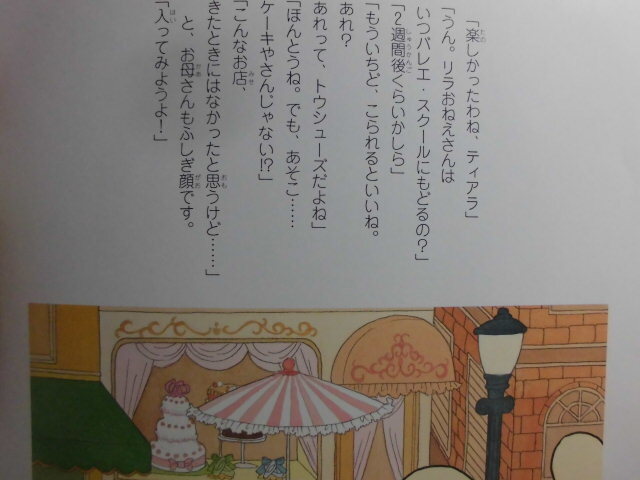 「楽しかったわね、ティアラ」
「うん。リラおねえさんは
いつバレエ・スクールにもどるの？」
「2週間後くらいかしら」
「もういちど、こられるといいね。
あれ？
あれって、トウシューズだよね」
「ほんとうね。でも、あそこ……
ケーキやさんじゃない!?」
「こんなお店、
きたときにはなかったと思うけど……」
と、お母さんもふしぎ顔です。
「入ってみようよ！」